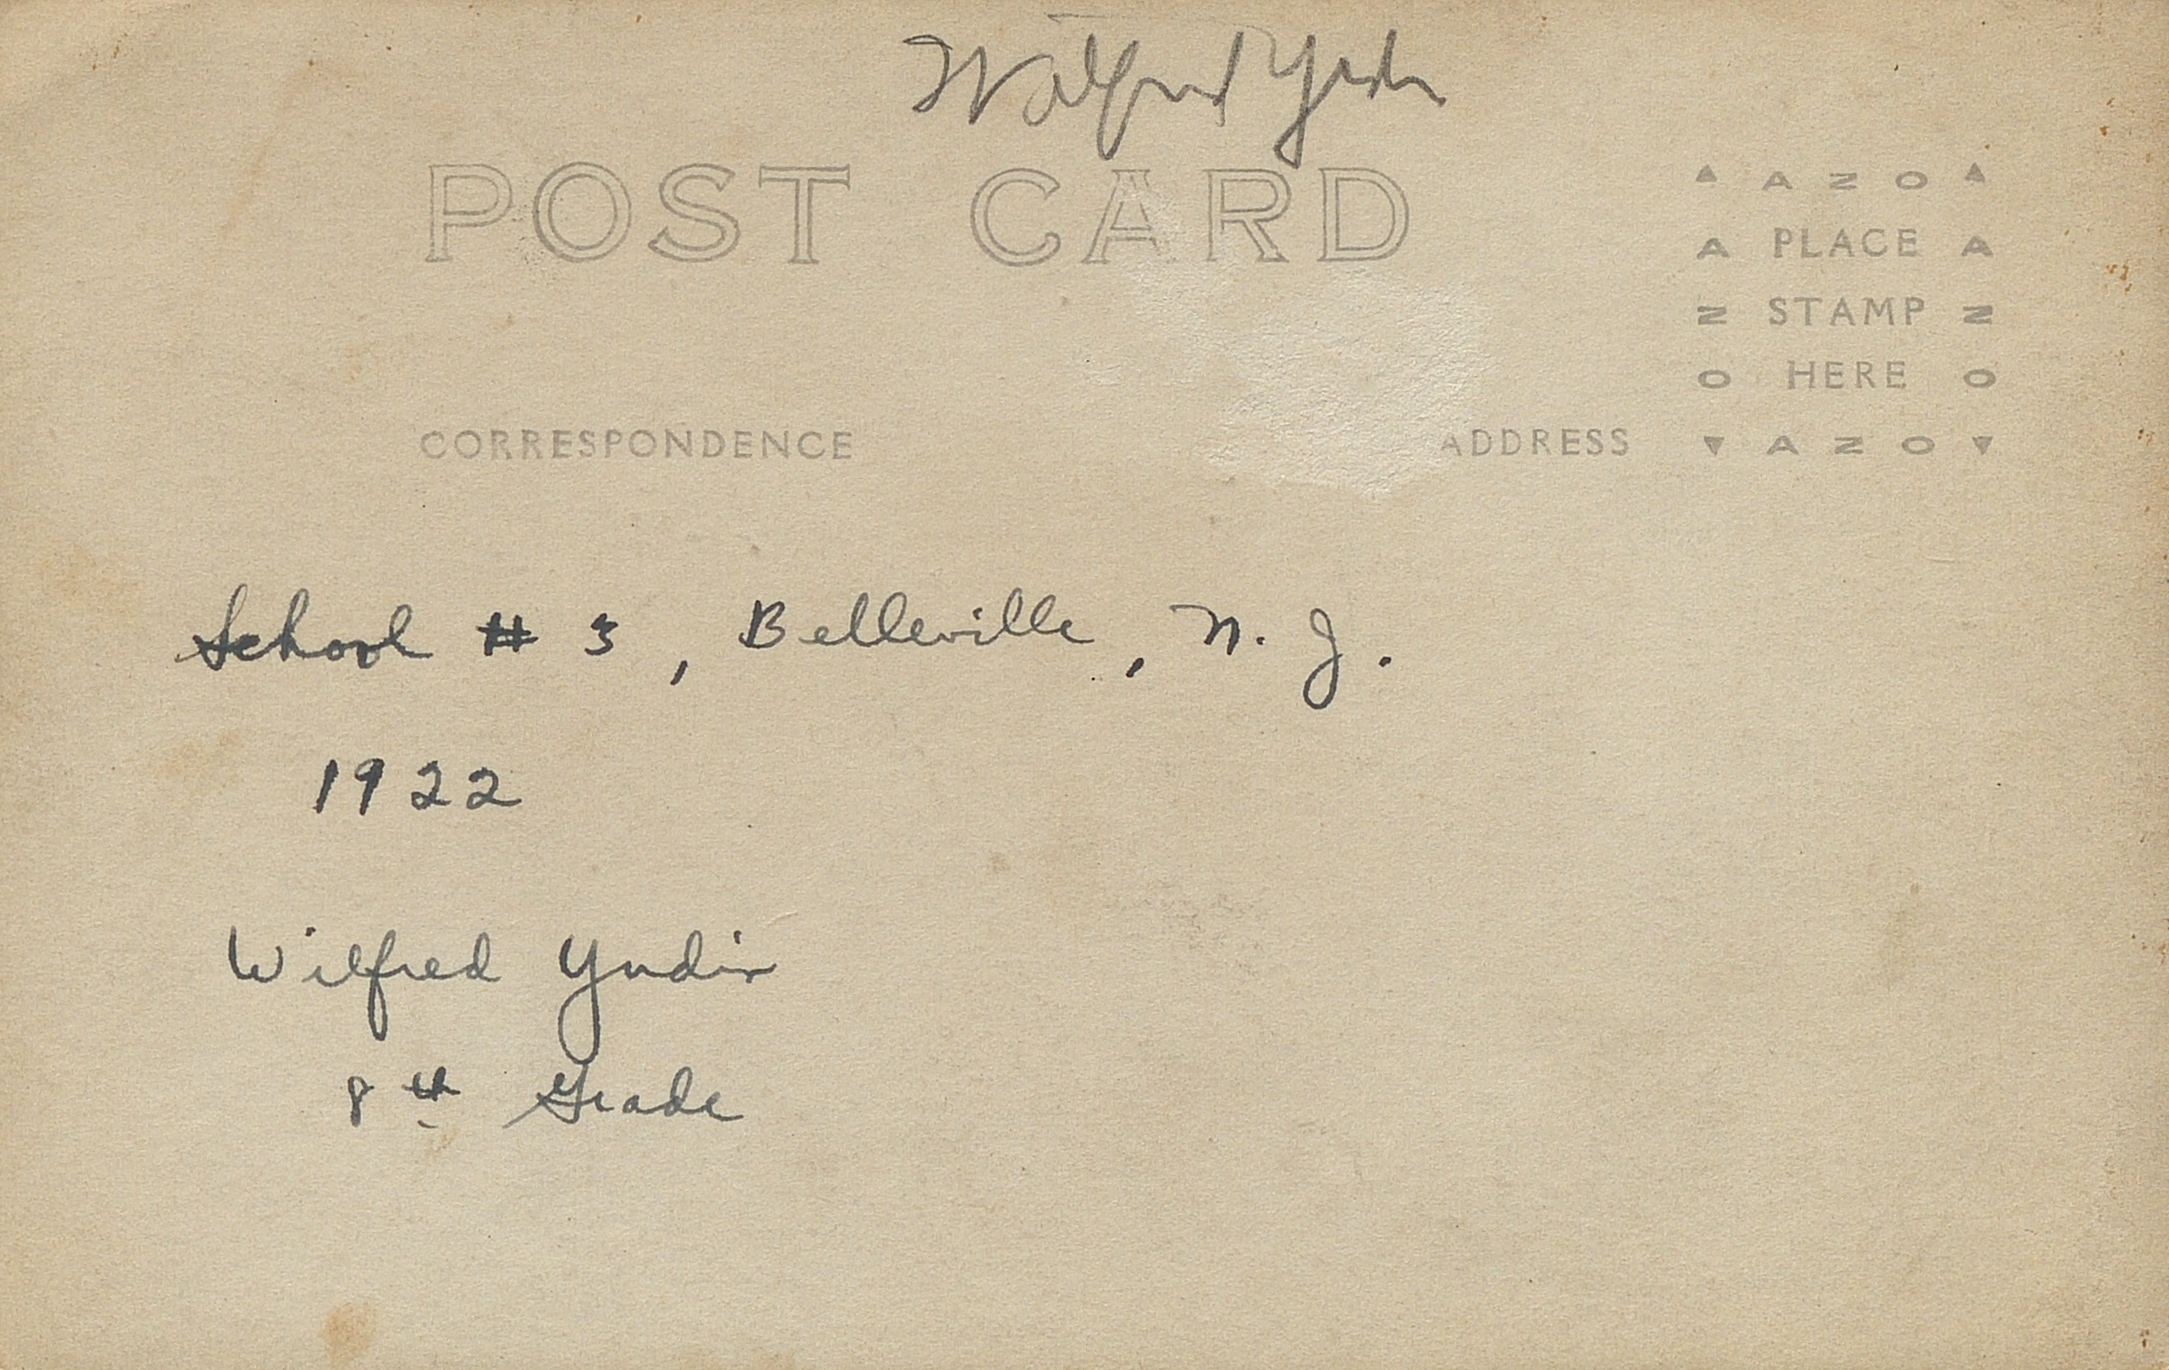 Wilfred Yudin
POST CARD
▲ AZO ▲
A PLACE A
N STAMP N
O HERE O
CORRESPONDENCE
ADDRESS
▼ AZO ▼
School # 3, Belleville, N. J.
1922
Wilfred Yudin
8th Grade